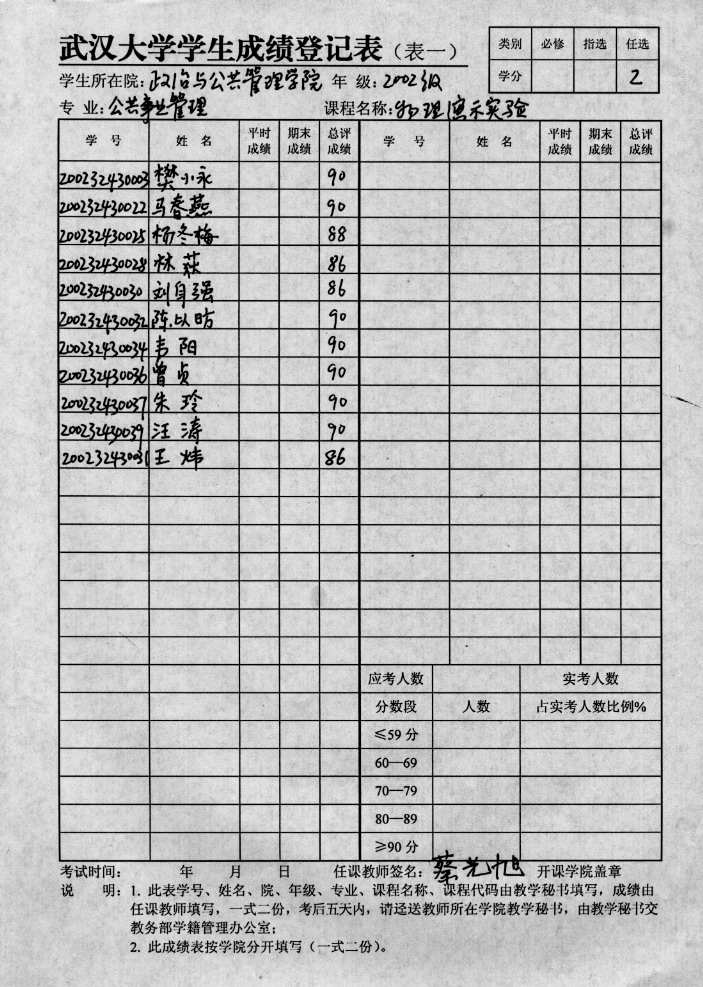 武汉大学学生成绩登记表（表一）
类别 必修 指选 任选
学分 2
学生所在院：政治与公共管理学院 年 级：2002级
专 业：公共事业管理 课程名称：物理演示实验
学 号 姓 名 平时成绩 期末成绩 总评成绩 学 号 姓 名 平时成绩 期末成绩 总评成绩
200232430003 樊小永 90
200232430022 马春燕 90
200232430025 杨冬梅 88
200232430028 林 荻 86
200232430030 刘自强 86
200232430032 陈以昉 90
200232430034 韦 阳 90
200232430036 曾 贞 90
200232430037 朱 玲 90
200232430039 汪 涛 90
200232430031 王 炜 86
应考人数 实考人数
分数段 人数 占实考人数比例%
≤59 分
60—69
70—79
80—89
≥90 分
考试时间： 年 月 日 任课教师签名：蔡光旭 开课学院盖章
说 明：1. 此表学号、姓名、院、年级、专业、课程名称、课程代码由教学秘书填写，成绩由
任课教师填写，一式二份，考后五天内，请迳送教师所在学院教学秘书，由教学秘书交
教务部学籍管理办公室；
2. 此成绩表按学院分开填写（一式二份）。